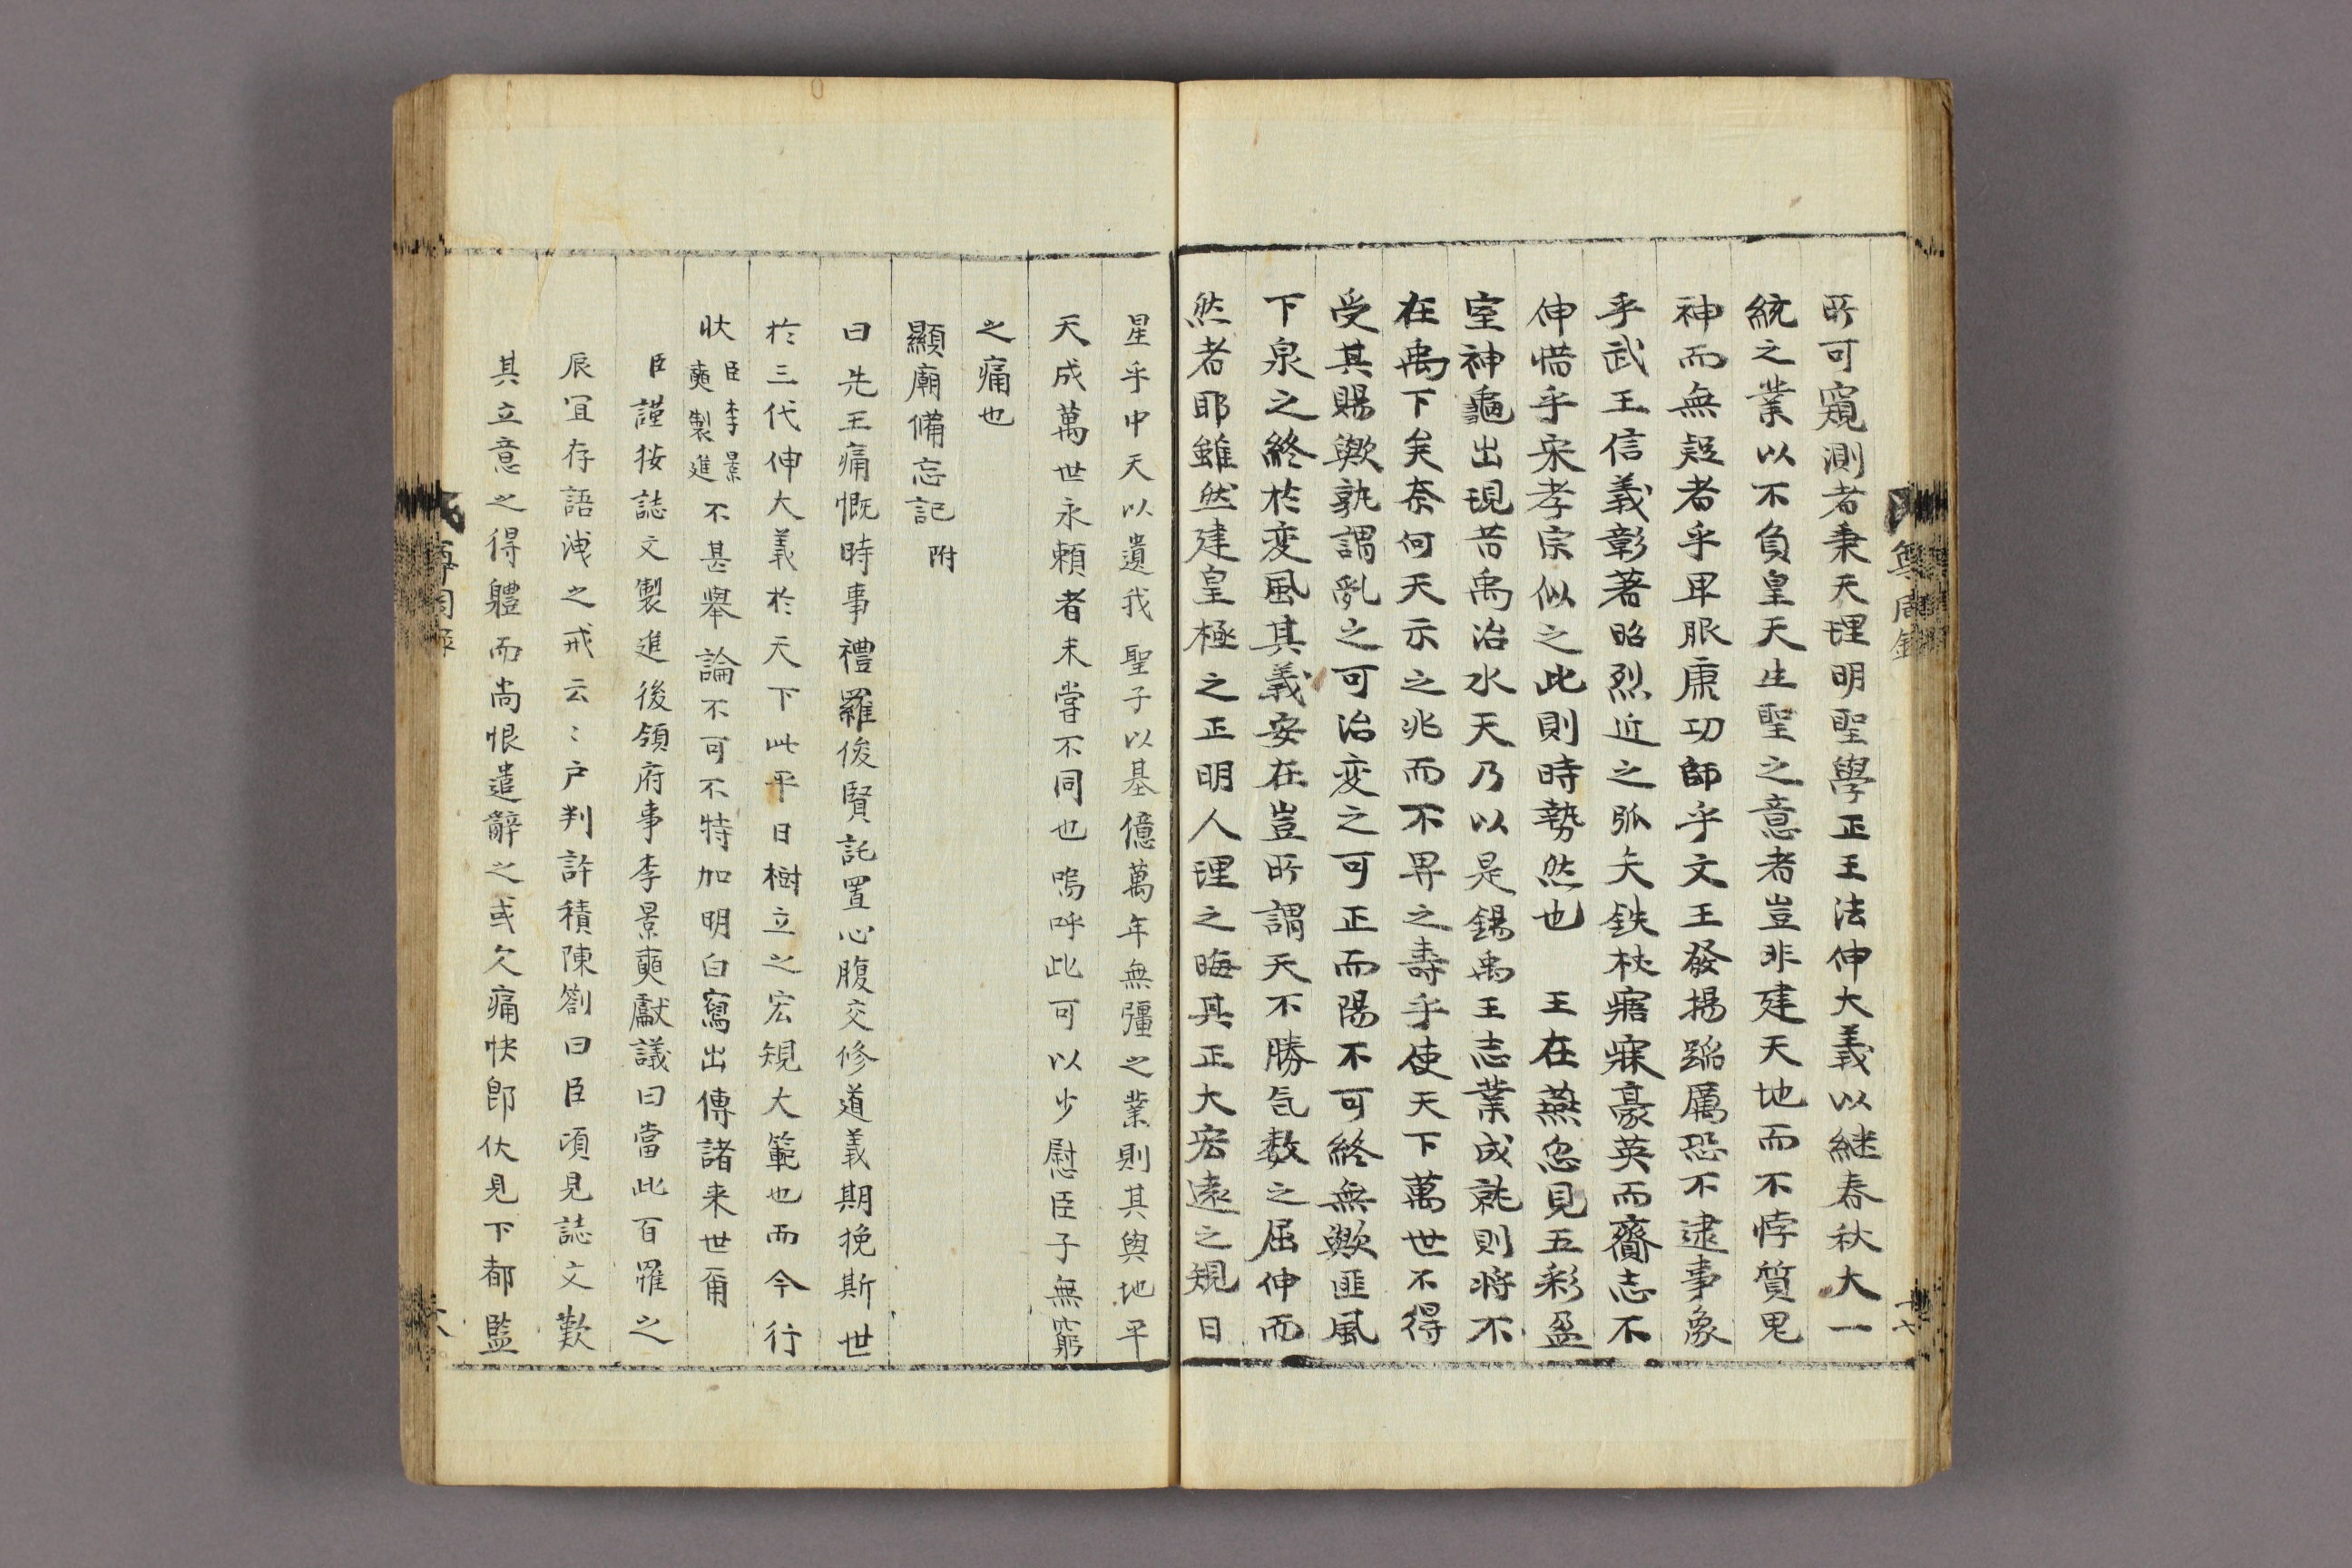 所可窺測者秉天理明聖學正王法伸大義以継春秋大一
統之業以不負皇天生聖之意者豈非建天地而不悖質鬼
神而無疑者乎卑服康功師乎文王發揚蹈厲恐不逮事象
乎武王信義彰著昭烈近之弧矢鉄杖寤寐豪英而齎志不
伸惜乎宋孝宗似之此則時勢然也 王在燕忽見五彩盈
室神龜出現昔禹治水天乃以是錫禹王志業成就則將不
在禹下矣奈何天示之兆而不畀之壽乎使天下萬世不得
受其賜歟孰謂亂之可治変之可正而陽不可終無歟匪風
下泉之終於変風其義安在豈所謂天不勝気数之屈伸而
然者耶雖然建皇極之正明人理之晦其正大宏遠之規日
星乎中天以遺我 聖子以基億萬年無彊之業則其與地平
天成萬世永頼者未甞不同也嗚呼此可以少慰臣子無窮
之痛也
顯廟備忘記 附
曰先王痛慨時事禮羅俊賢託置心腹交修道義期挽斯世
於三代伸大義於天下此平日樹立之宏規大範也而今行
状 臣李景奭製進 不甚舉論不可不特加明白寫出傳諸来世爾
臣謹按誌文製進後領府事李景奭獻議曰當此百罹之
辰冝存語洩之戒云〻户判許積陳劄曰臣頃見誌文歎
其立意之得軆而尚恨遣辭之或欠痛快卽伏見下都監